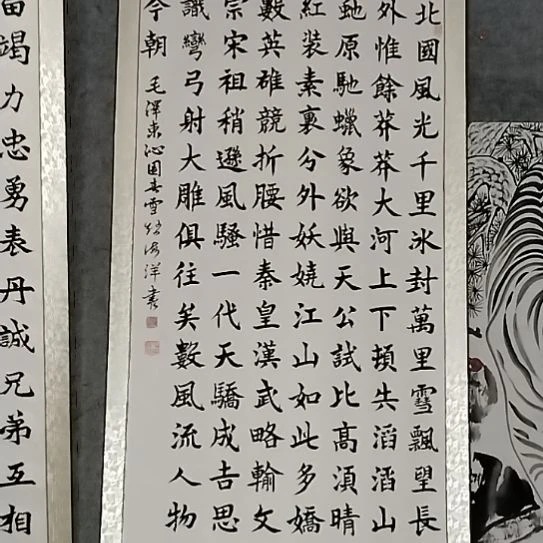 北國風光千里冰封萬里雪飄望長
外惟餘莽莽大河上下頓失滔滔山
虵原馳蠟象欲與天公試比高湏晴
紅裝素裹分外妖嬈江山如此多嬌
數英雄競折腰惜秦皇漢武略輸文
宗宋祖稍遜風騷一代天驕成吉思
識彎弓射大雕俱往矣數風流人物
今朝
毛澤東沁園春雪 洋書
竭力忠勇表丹誠兄弟互相